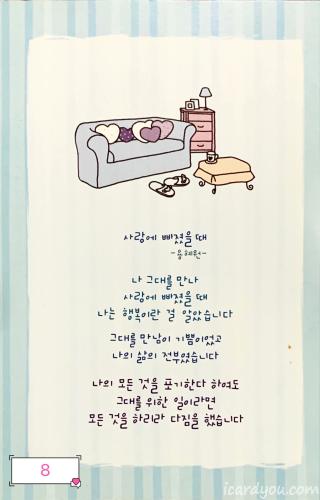 사랑에 빠졌을 때
-용혜원-
나 그대를 만나
사랑에 빠졌을 때
나는 행복이란 걸 알았습니다
그대를 만남이 기쁨이었고
나의 삶의 전부였습니다
나의 모든 것을 포기한다 하여도
그대를 위한 일이라면
모든 것을 하리라 다짐을 했습니다
8
icardyou.com